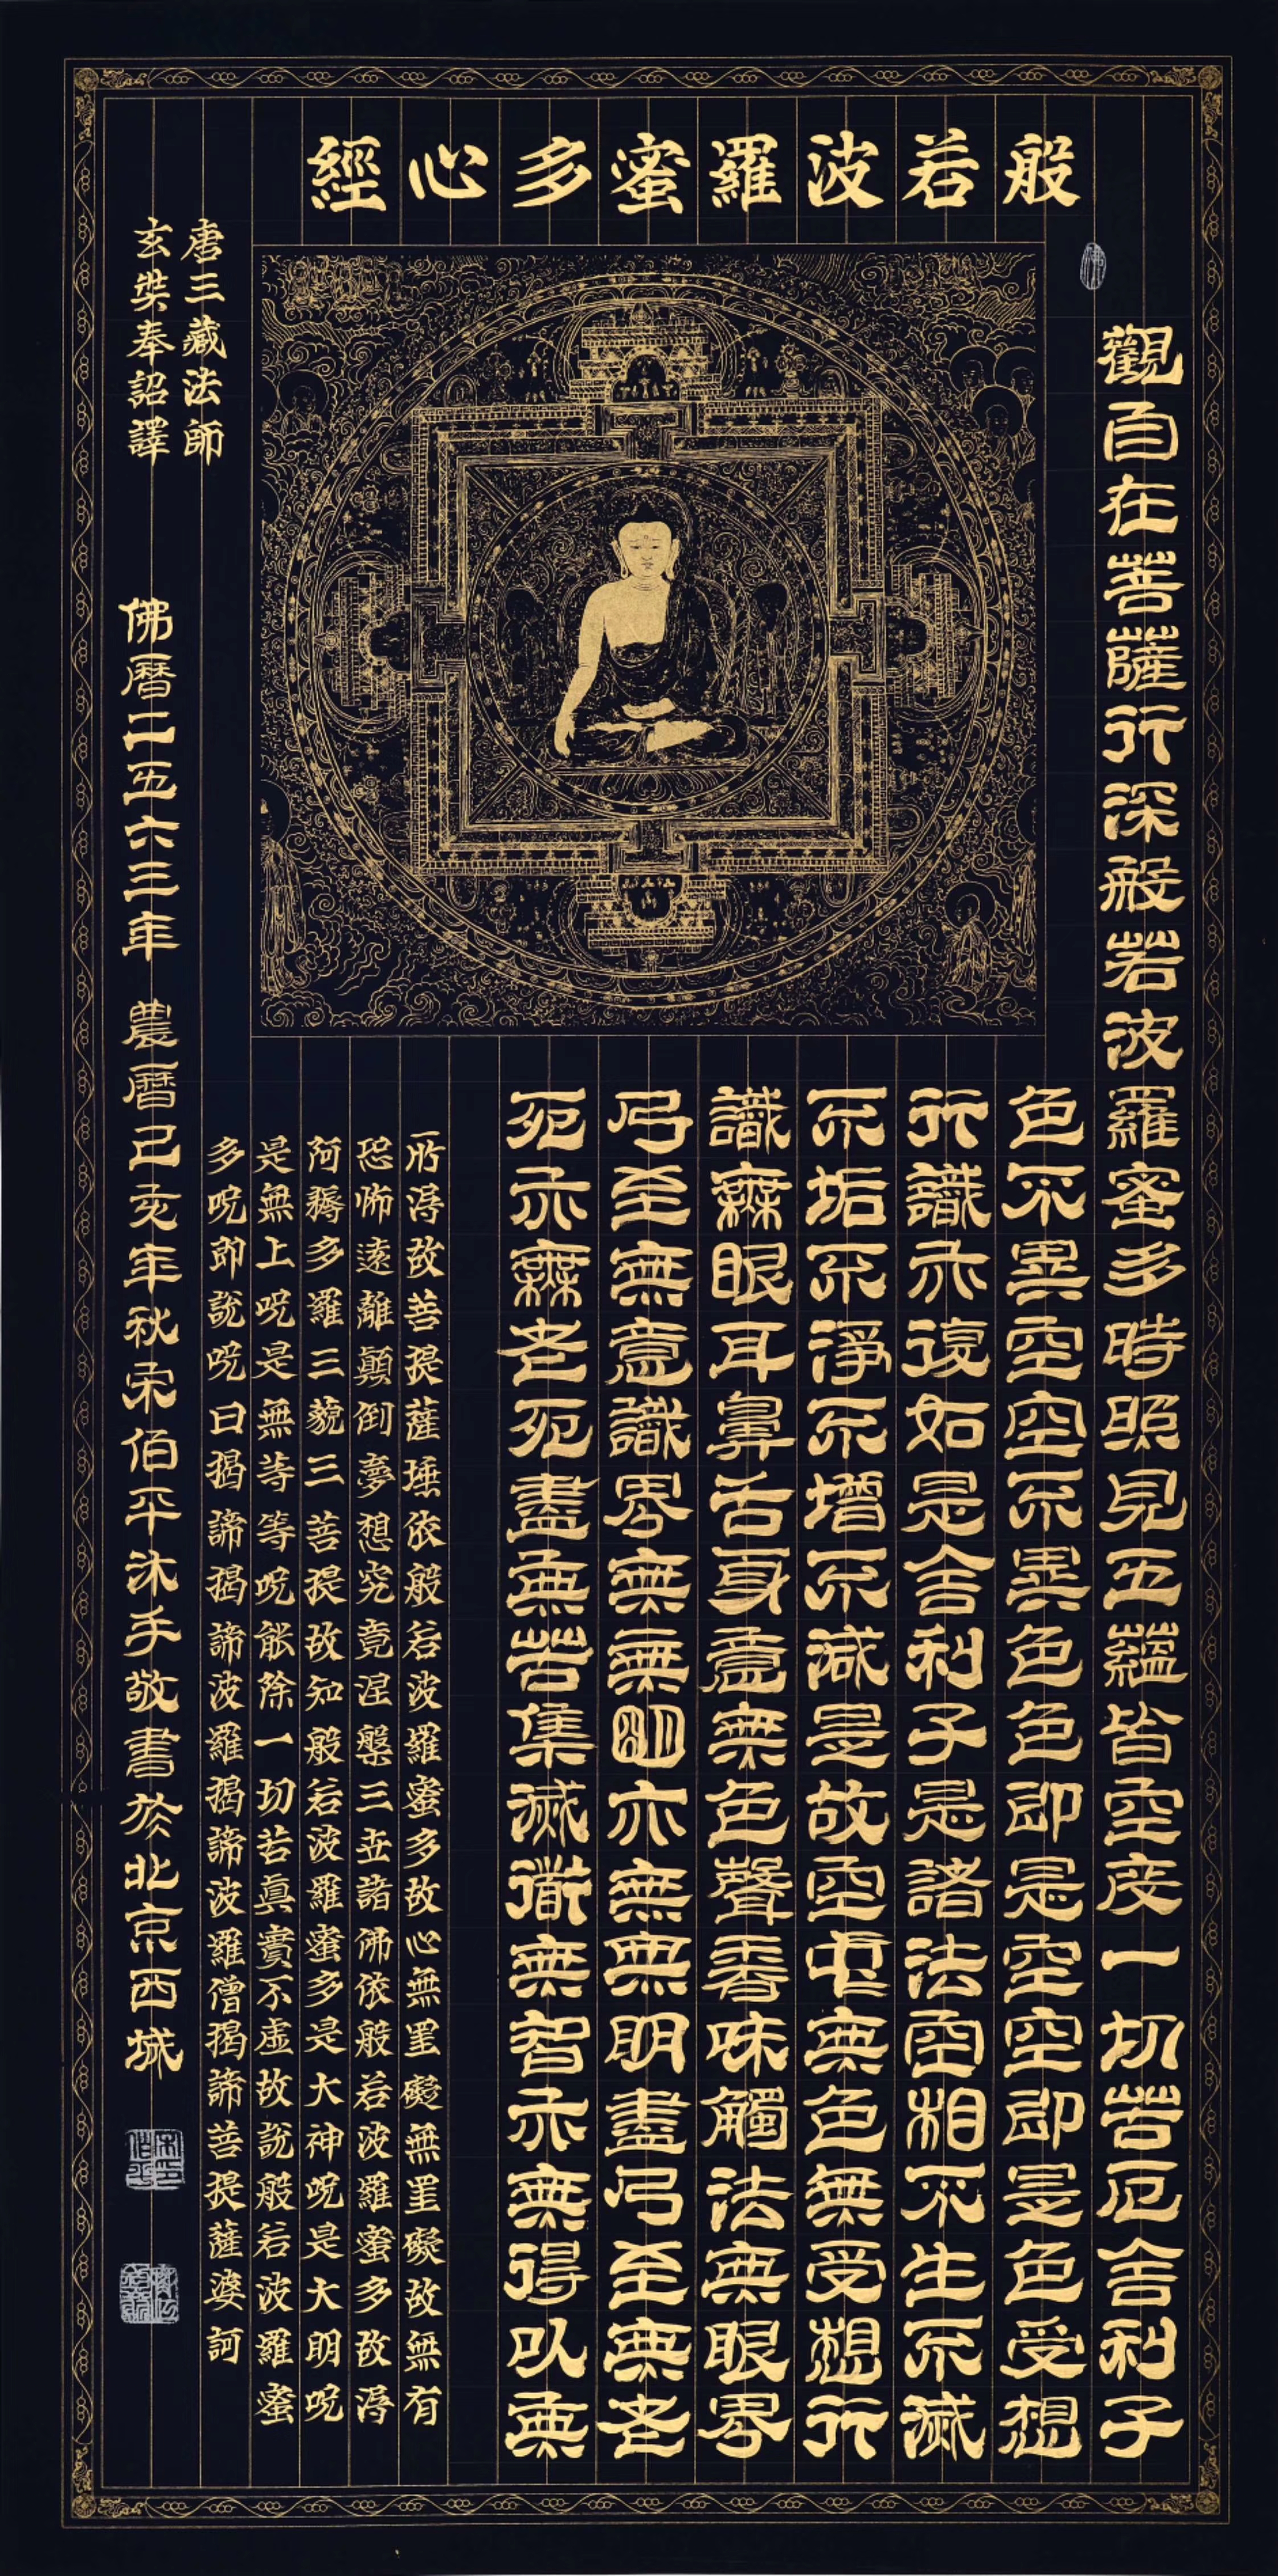 般若波羅蜜多心經
觀自在菩薩行深般若波羅蜜多時照見五蘊皆空度一切苦厄舍利子
色不異空空不異色色即是空空即是色受想
行識亦復如是舍利子是諸法空相不生不滅
不垢不淨不增不減是故空中無色無受想行
識無眼耳鼻舌身意無色聲香味觸法無眼界
乃至無意識界無無明亦無無明盡乃至無老
死亦無老死盡無苦集滅道無智亦無得以無
所得故菩提薩埵依般若波羅蜜多故心無罣礙無罣礙故無有
恐怖遠離顛倒夢想究竟涅槃三世諸佛依般若波羅蜜多故得
阿耨多羅三藐三菩提故知般若波羅蜜多是大神呪是大明呪
是無上呪是無等等呪能除一切苦眞實不虛故說般若波羅蜜
多呪即說呪曰揭諦揭諦波羅揭諦波羅僧揭諦菩提薩婆訶
唐三藏法師
玄奘奉詔譯
佛曆二五六三年 農曆己亥年秋宋伯平沐手敬書於北京西城